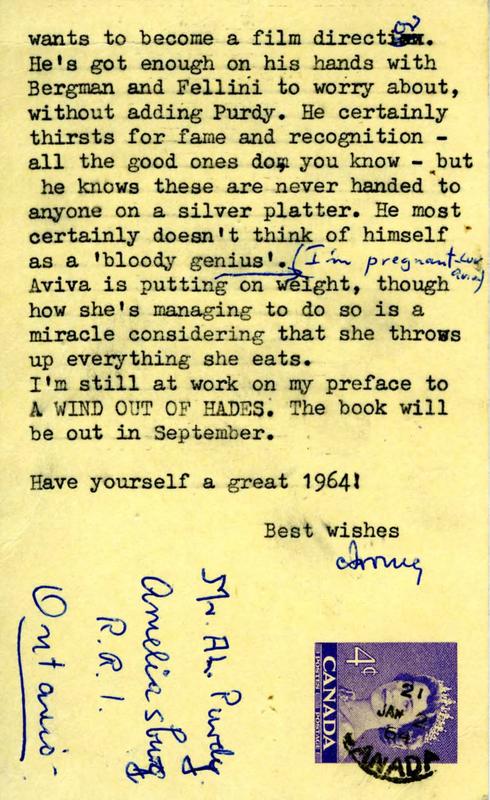 wants to become a film director.
He's got enough on his hands with
Bergman and Fellini to worry about,
without adding Purdy. He certainly
thirsts for fame and recognition -
all the good ones do, you know - but
he knows these are never handed to
anyone on a silver platter. He most
certainly doesn't think of himself
as a 'bloody genius'. (I'm pregnant - luv Aviva)
Aviva is putting on weight, though
how she's managing to do so is a
miracle considering that she throws
up everything she eats.
I'm still at work on my preface to
A WIND OUT OF HADES. The book will
be out in September.
Have yourself a great 1964!
Best wishes
Irving
Mr. AL. Purdy
Ameliasburg
R.R.1.
Ontario.
4¢
CANADA
POSTES POSTAGE
21
JAN 2
64
CANADA